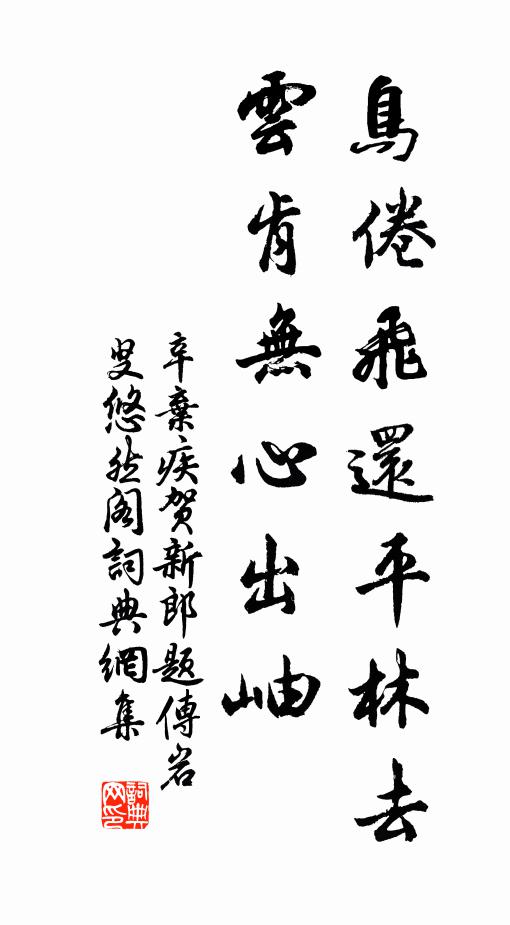 鳥倦飛還平林去
雲肯無心出岫
辛棄疾賀新郎題傅岩
叟悠然阁詞典網集
詞典
网印